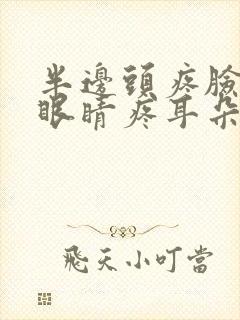 半邊頭疼臉
眼睛疼耳朵
飛天小叮當